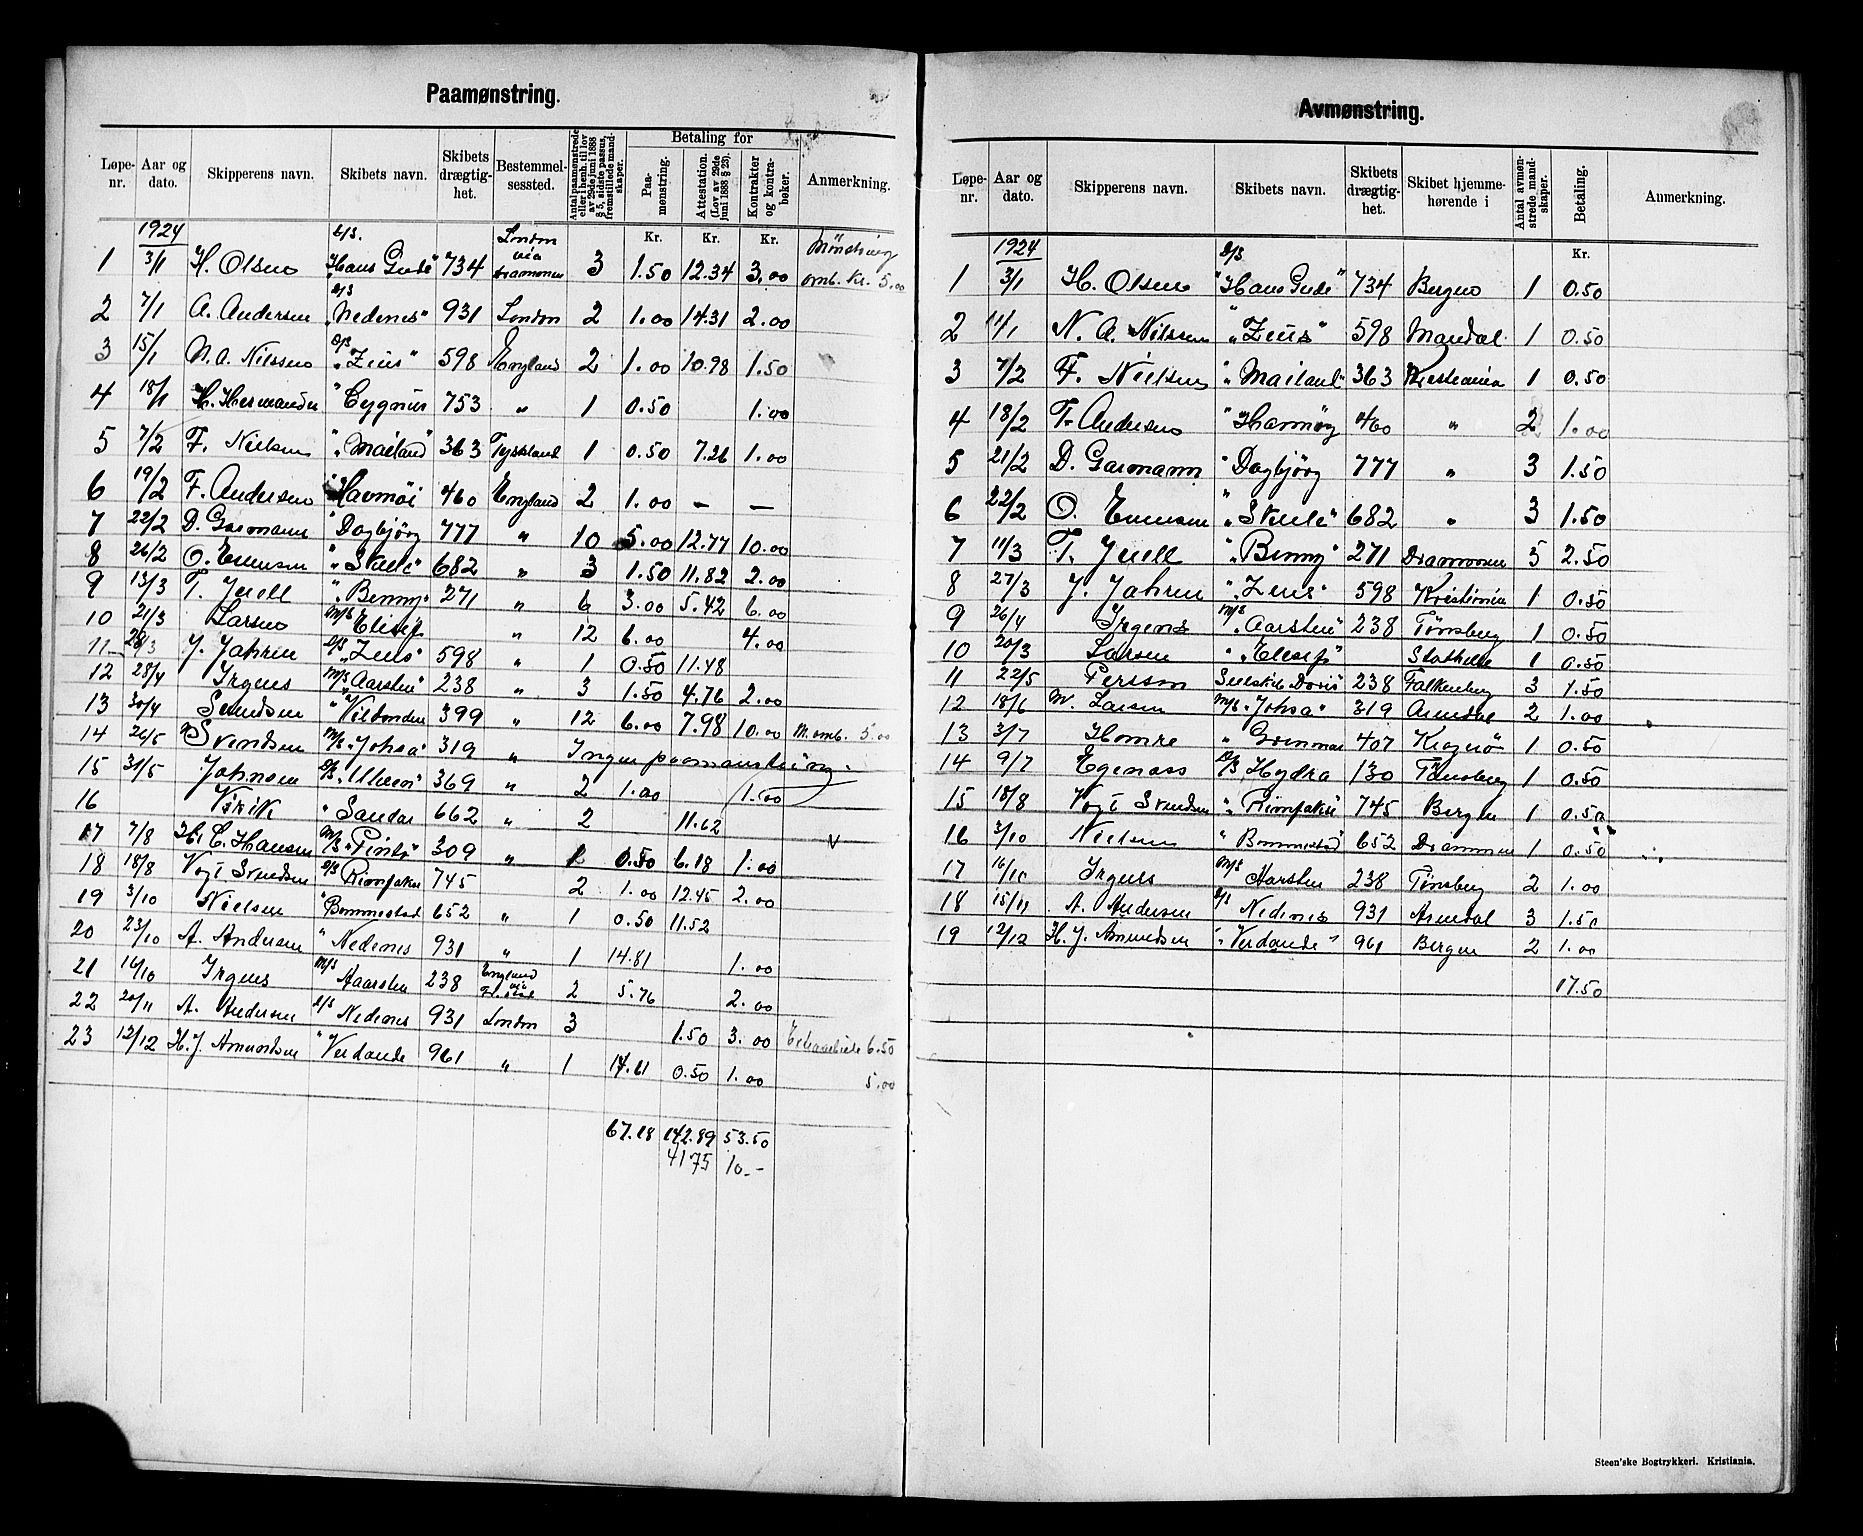 Paamønstring.
Løpe-nr. Aar og dato. Skipperens navn. Skibets navn. Skibets drægtig-het. Bestemmel-sessted. Antal paamønstrede eller i henh. til lov av 29de juni 1888 § 5, sidste passus, fremstillede mand-skaper. Betaling for Paa-mønstring. Attestation. (Lov av 29de juni 1888 § 23). Kontrakter og kontra-bøker. Anmerkning.
1924 Kr. Kr. Kr.
1 3/1 H. Olsen D/S. "Hans Gude" 734 London via Drammen 3 1.50 12.34 3.00 Mønstring omb. Kr. 5.00
2 7/1 A. Andersen D/S "Nedenes" 931 London 2 1.00 14.31 2.00
3 15/1 N. A. Nilssen D/S "Zeus" 598 England 2 1.00 10.98 1.50
4 18/1 H. Hermansen " Cygnus 753 " 1 0.50 1.00
5 7/2 F. Nielsen " "Mailand" 363 Tyskland 1 0.50 7.26 1.00
6 19/2 F. Andersen Havmøi 460 England 2 1.00 — —
7 22/2 D. Garmann " Dagbjørg 777 " 10 5.00 12.77 10.00
8 26/2 O. Evensen " "Skule" 682 " 3 1.50 11.82 2.00
9 13/3 T. Juell "Benny" 271 " 6 3.00 5.42 6.00
10 21/3 Larsen M/S Elisif " 12 6.00 4.00
11 28/3 J. Jahren D/S "Zeus" 598 " 1 0.50 11.48
12 28/4 Irgens M/S Aarsten 238 " 3 1.50 4.76 2.00
13 30/4 Svendsen 399 " 12 6.00 7.98 10.00 M. omb. 5.00
14 26/5 Svendsen M/S "Johsa" 319 " Ingen paamønstring.
15 31/5 Johnsen D/S 369 " 2 1.00 1.00
16 Virik " Sandar 662 " 2 11.62
17 7/8 H. C. Hansen M/S 309 " 1 0.50 6.18 1.00 v
18 18/8 Vogt Svendsen D/S Rimfakse 745 2 1.00 12.45 2.00
19 3/10 Nielsen " Bommestad 652 " 1 0.50 11.52
20 23/10 A. Andersen " Nedenes 931 " 1 14.81 1.00
21 16/10 Irgens M/S Aaarsten 238 England via 2 5.76 2.00
22 20/11 A. Andersen D/S Nedenes 931 London 3 1.50 3.00 6.50
23 12/12 H. J. Amundsen " Verdande 961 " 1 14.61 0.50 1.00 5.00
67.18 142.89 53.50
4175 10.-
Avmønstring.
Løpe-nr. Aar og dato. Skipperens navn. Skibets navn. Skibets drægtig-het. Skibet hjemme-hørende i Antal avmøn-strede mand-skaper. Betaling. Anmerkning.
1924 Kr.
1 3/1 H. Olsen D/S "Hans Gude" 734 Bergen 1 0.50
2 11/1 N. A. Nilssen "Zeus" 598 Mandal 1 0.50
3 7/2 F. Nielsen "Mailand" 363 Kristiania 1 0.50
4 18/2 F. Andersen " Havmøy 460 " 2 1.00
5 21/2 D. Garmann " Dagbjørg 777 " 3 1.50
6 22/2 O. Evensen " "Skule" 682 " 3 1.50
7 11/3 T. Juell "Benny" 271 Drammen 5 2.50
8 27/3 J. Jahren "Zeus" 598 Kristiania 1 0.50
9 26/4 Irgens M/S "Aarsten" 238 Tønsberg 1 0.50
10 20/3 Larsen " "Elisif" Stathelle 1 0.50
11 22/5 Persson Seilskib Doris 238 Falkenberg 3 1.50
12 18/6 M. Larsen M/S "Johsa" 319 Arendal 2 1.00
13 3/7 Homre " 407 Kragerø 1 0.50
14 9/7 Egenæss D/S Hydra 130 Tønsberg 1 0.50
15 18/8 Vogt Svendsen " Rimfakse 745 Bergen 1 0.50
16 3/10 Nielsen " Bommestad 652 Drammen 1 0.50
17 16/10 Irgens M/S Aarsten 238 Tønsberg 2 1.00
18 15/11 A. Andersen D/S Nedenes 931 Arendal 3 1.50
19 12/12 H. J. Amundsen " Verdande " 961 Bergen 2 1.00
17.50
Steen'ske Bogtrykkeri. Kristiania.